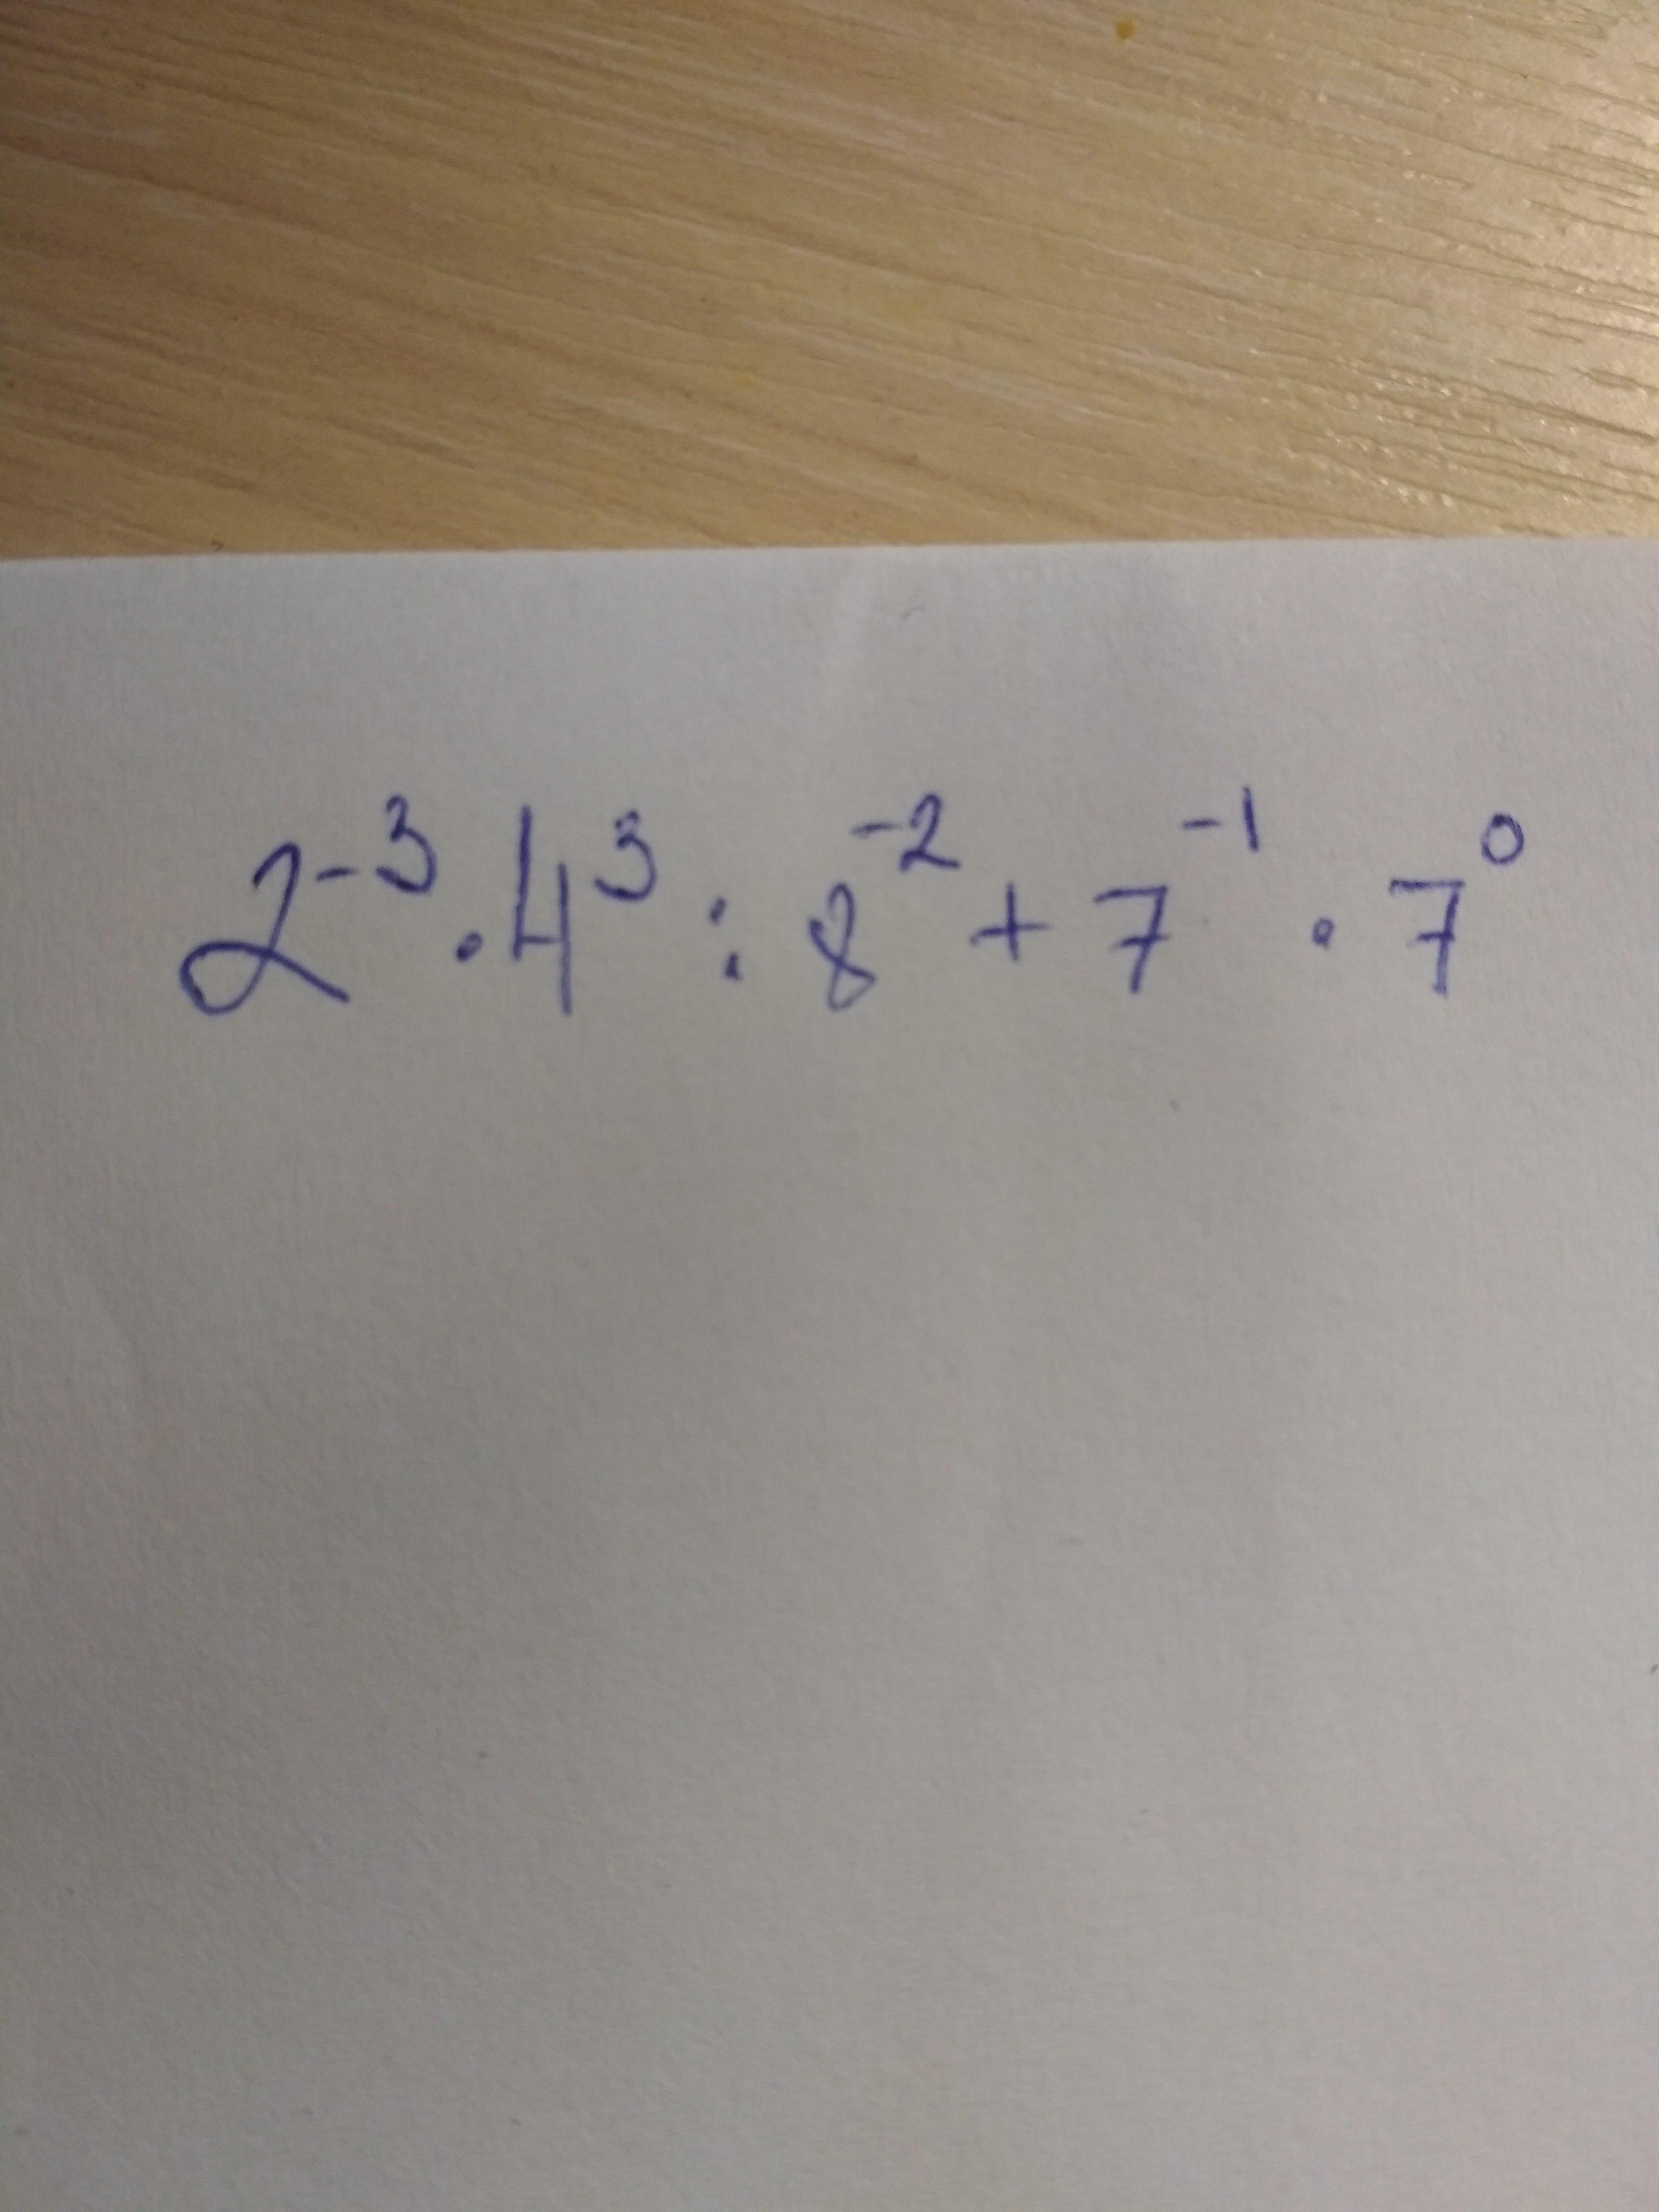 2⁻³·4³:8⁻²+7⁻¹·7⁰